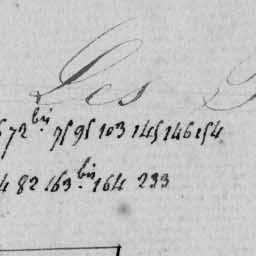 Les
72 bis 75 95 103 145 146 154
82 163 bis 164 233